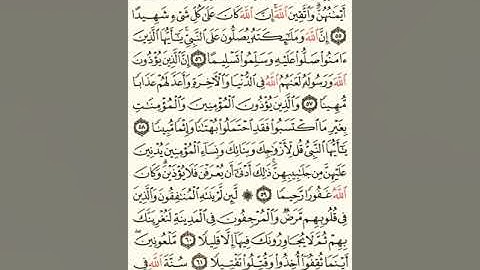 أَيْمَٰنُهُنَّ ۗ وَٱتَّقِينَ ٱللَّهَ ۚ إِنَّ ٱللَّهَ كَانَ عَلَىٰ كُلِّ شَىْءٍ شَهِيدًا
۝٥٥ إِنَّ ٱللَّهَ وَمَلَٰٓئِكَتَهُۥ يُصَلُّونَ عَلَى ٱلنَّبِىِّ ۚ يَٰٓأَيُّهَا ٱلَّذِينَ
ءَامَنُوا۟ صَلُّوا۟ عَلَيْهِ وَسَلِّمُوا۟ تَسْلِيمًا ۝٥٦ إِنَّ ٱلَّذِينَ يُؤْذُونَ
ٱللَّهَ وَرَسُولَهُۥ لَعَنَهُمُ ٱللَّهُ فِى ٱلدُّنْيَا وَٱلْءَاخِرَةِ وَأَعَدَّ لَهُمْ عَذَابًا
مُّهِينًا ۝٥٧ وَٱلَّذِينَ يُؤْذُونَ ٱلْمُؤْمِنِينَ وَٱلْمُؤْمِنَٰتِ
بِغَيْرِ مَا ٱكْتَسَبُوا۟ فَقَدِ ٱحْتَمَلُوا۟ بُهْتَٰنًا وَإِثْمًا مُّبِينًا ۝٥٨
يَٰٓأَيُّهَا ٱلنَّبِىُّ قُل لِّأَزْوَٰجِكَ وَبَنَاتِكَ وَنِسَآءِ ٱلْمُؤْمِنِينَ يُدْنِينَ
عَلَيْهِنَّ مِن جَلَٰبِيبِهِنَّ ۚ ذَٰلِكَ أَدْنَىٰٓ أَن يُعْرَفْنَ فَلَا يُؤْذَيْنَ ۗ وَكَانَ
ٱللَّهُ غَفُورًا رَّحِيمًا ۝٥٩ ۞ لَّئِن لَّمْ يَنتَهِ ٱلْمُنَٰفِقُونَ وَٱلَّذِينَ
فِى قُلُوبِهِم مَّرَضٌ وَٱلْمُرْجِفُونَ فِى ٱلْمَدِينَةِ لَنُغْرِيَنَّكَ
بِهِمْ ثُمَّ لَا يُجَاوِرُونَكَ فِيهَآ إِلَّا قَلِيلًا ۝٦٠ مَّلْعُونِينَ ۖ
أَيْنَمَا ثُقِفُوٓا۟ أُخِذُوا۟ وَقُتِّلُوا۟ تَقْتِيلًا ۝٦١ سُنَّةَ ٱللَّهِ فِى